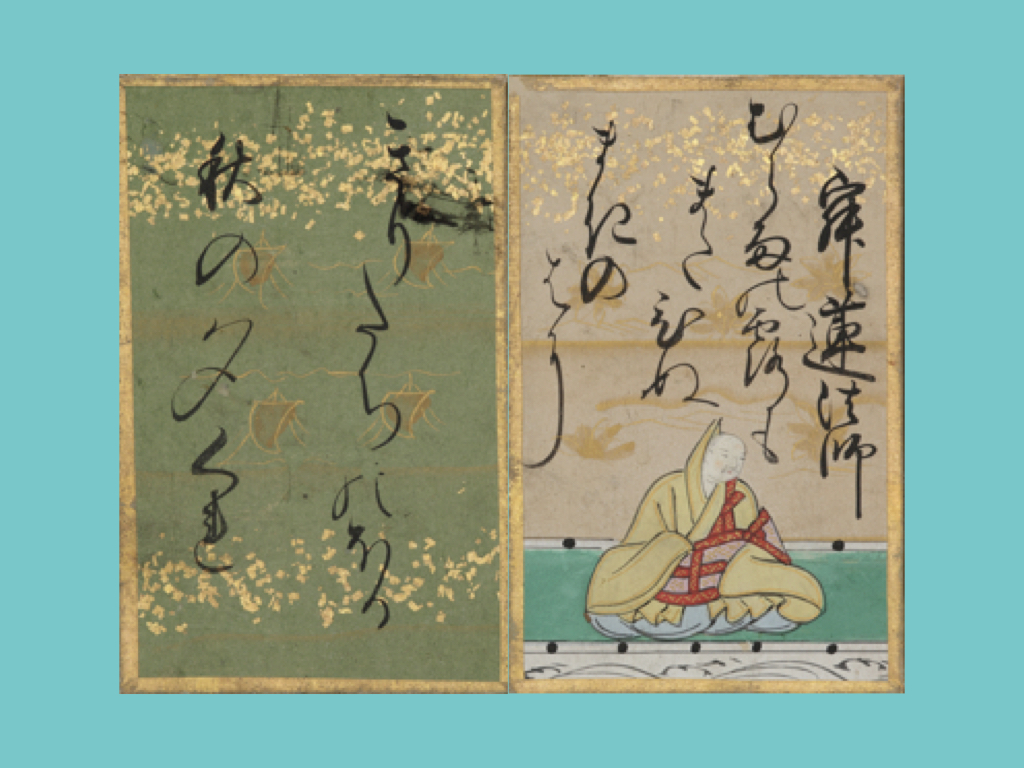 寂蓮法師
むら雨の露も
またひぬ
まきの
はに
きりたちのほる
秋の夕くれ